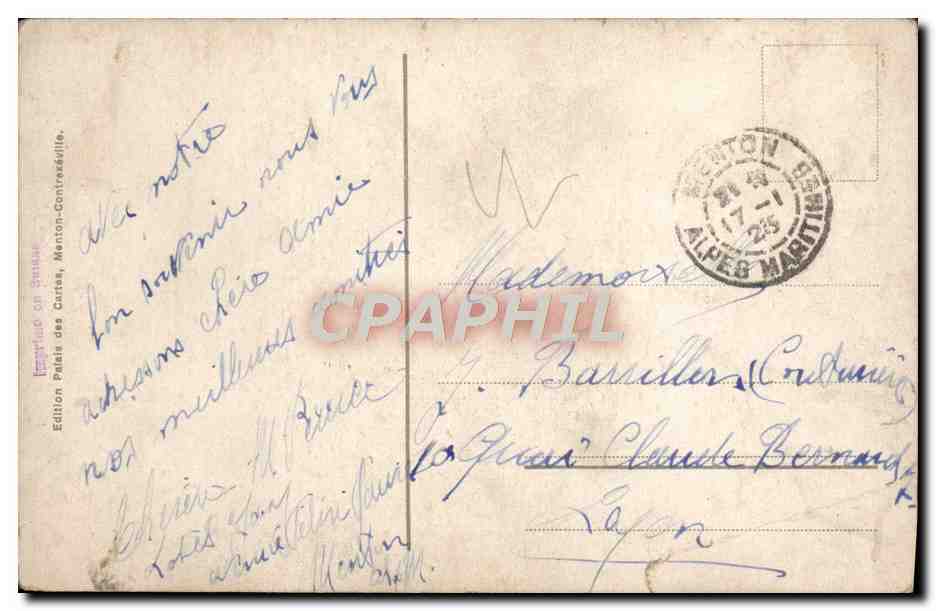 Imprimé en Suisse
Edition Palais des Cartes, Menton-Contrexéville.
avec notre
bon souvenir nous vous
adressons chère amie
nos meilleures amitiés
M
Menton
A M.
MENTON
17 -1
25
ALPES MARITIMES
Mademoiselle
J. Barrillon (Couturière)
10 Quai Claude Bernard
Lyon
CPAPHIL